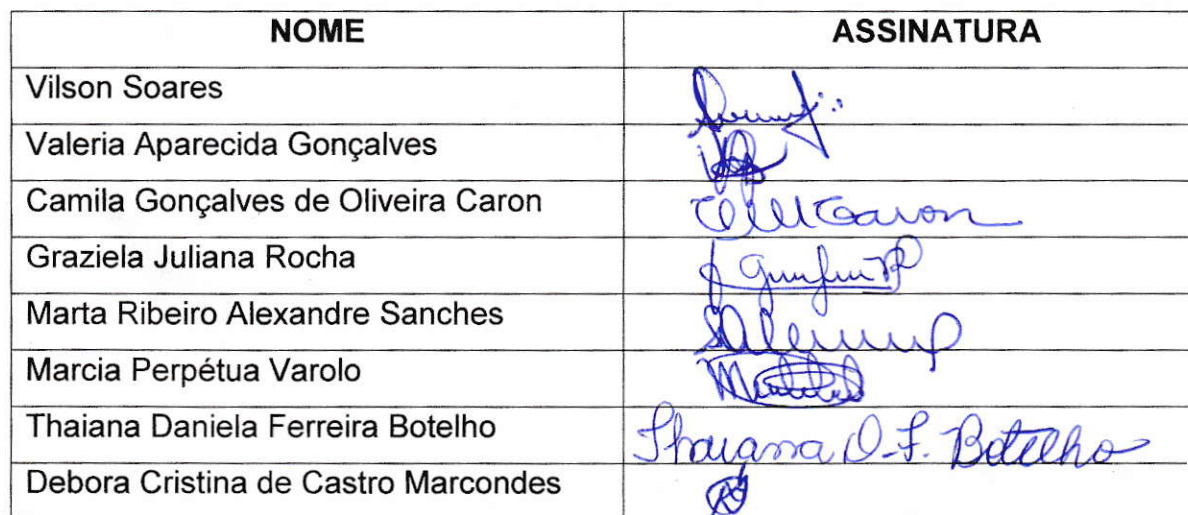 NOME ASSINATURA
Vilson Soares
Valeria Aparecida Gonçalves
Camila Gonçalves de Oliveira Caron
Graziela Juliana Rocha
Marta Ribeiro Alexandre Sanches
Marcia Perpétua Varolo
Thaiana Daniela Ferreira Botelho Thaiana D.F. Botelho
Debora Cristina de Castro Marcondes